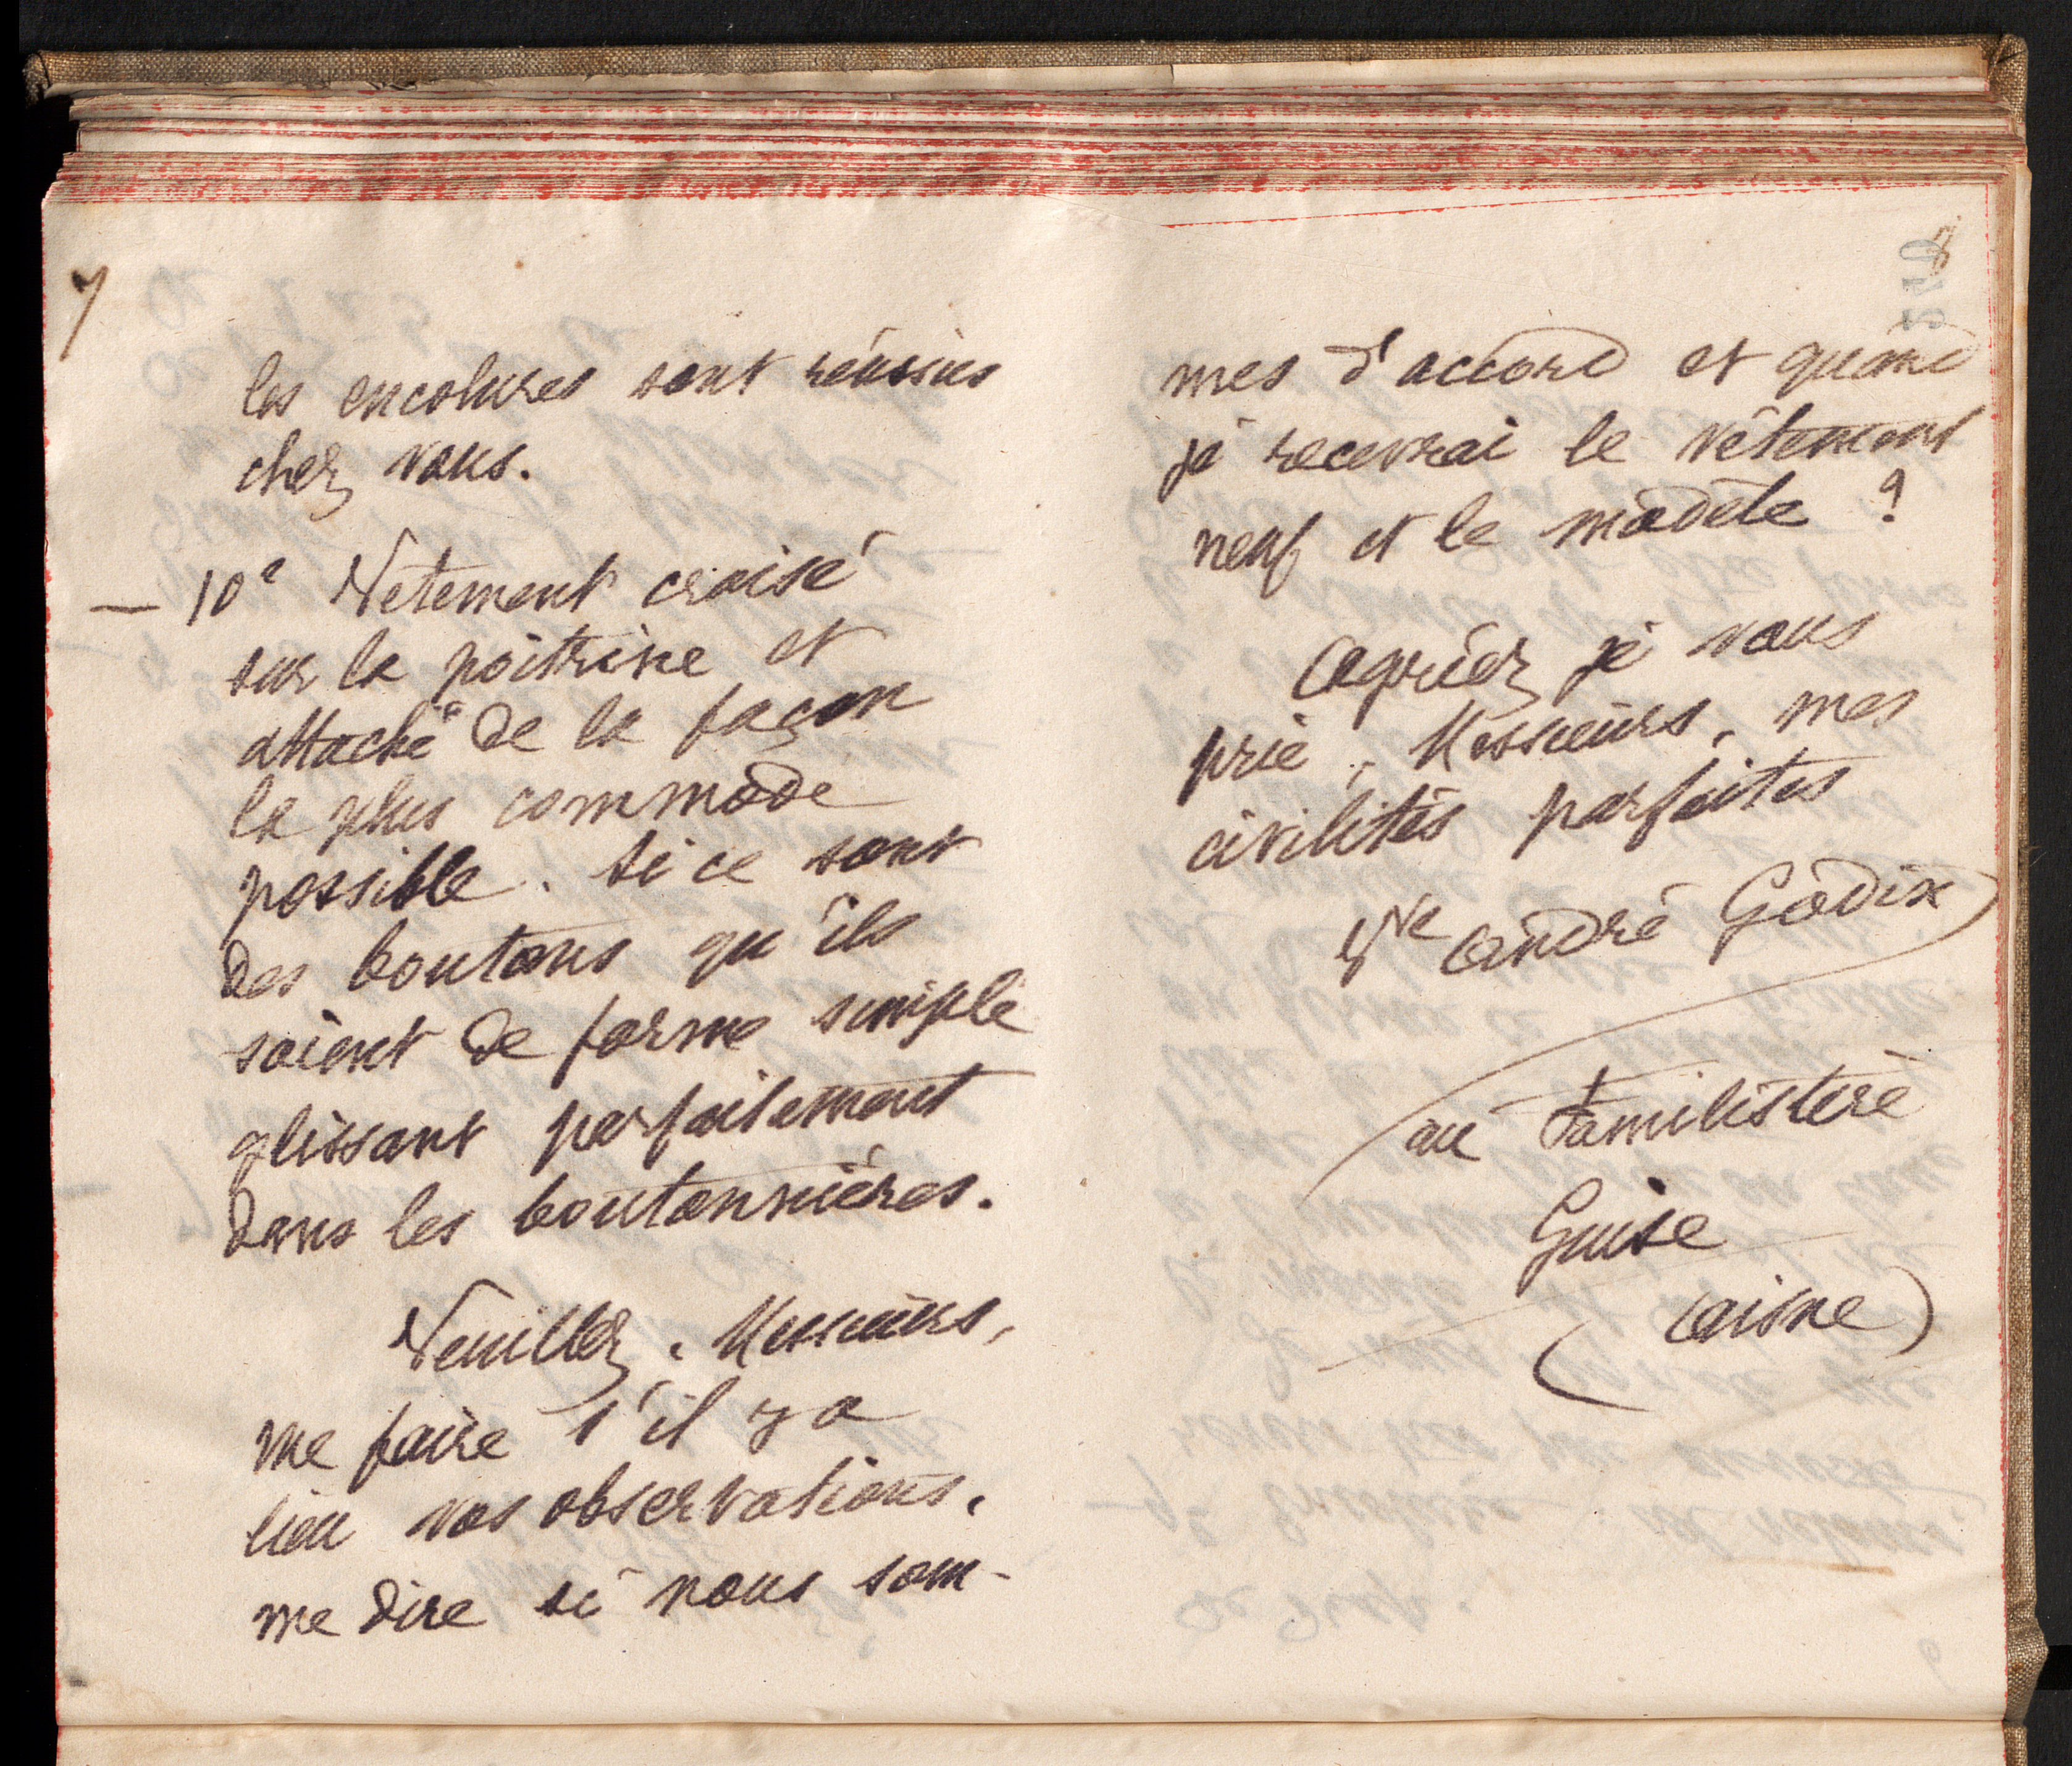 7
les encolures sont réussies
chez vous.
— 10e Vêtement croisé
sur la poitrine et
attaché de la façon
la plus commode
possible. Si ce sont
des boutons qu'ils
soient de forme simple
glissant parfaitement
dans les boutonnières.
Veuillez, Messieurs,
me faire s'il y a
lieu vos observations,
me dire si nous som-
8
mes d'accord et quand
je recevrai le vêtement
neuf et le modèle ?
Agréez je vous
prie, Messieurs, mes
civilités parfaites
Vve André Godin
au Familistère
Guise
(Aisne)